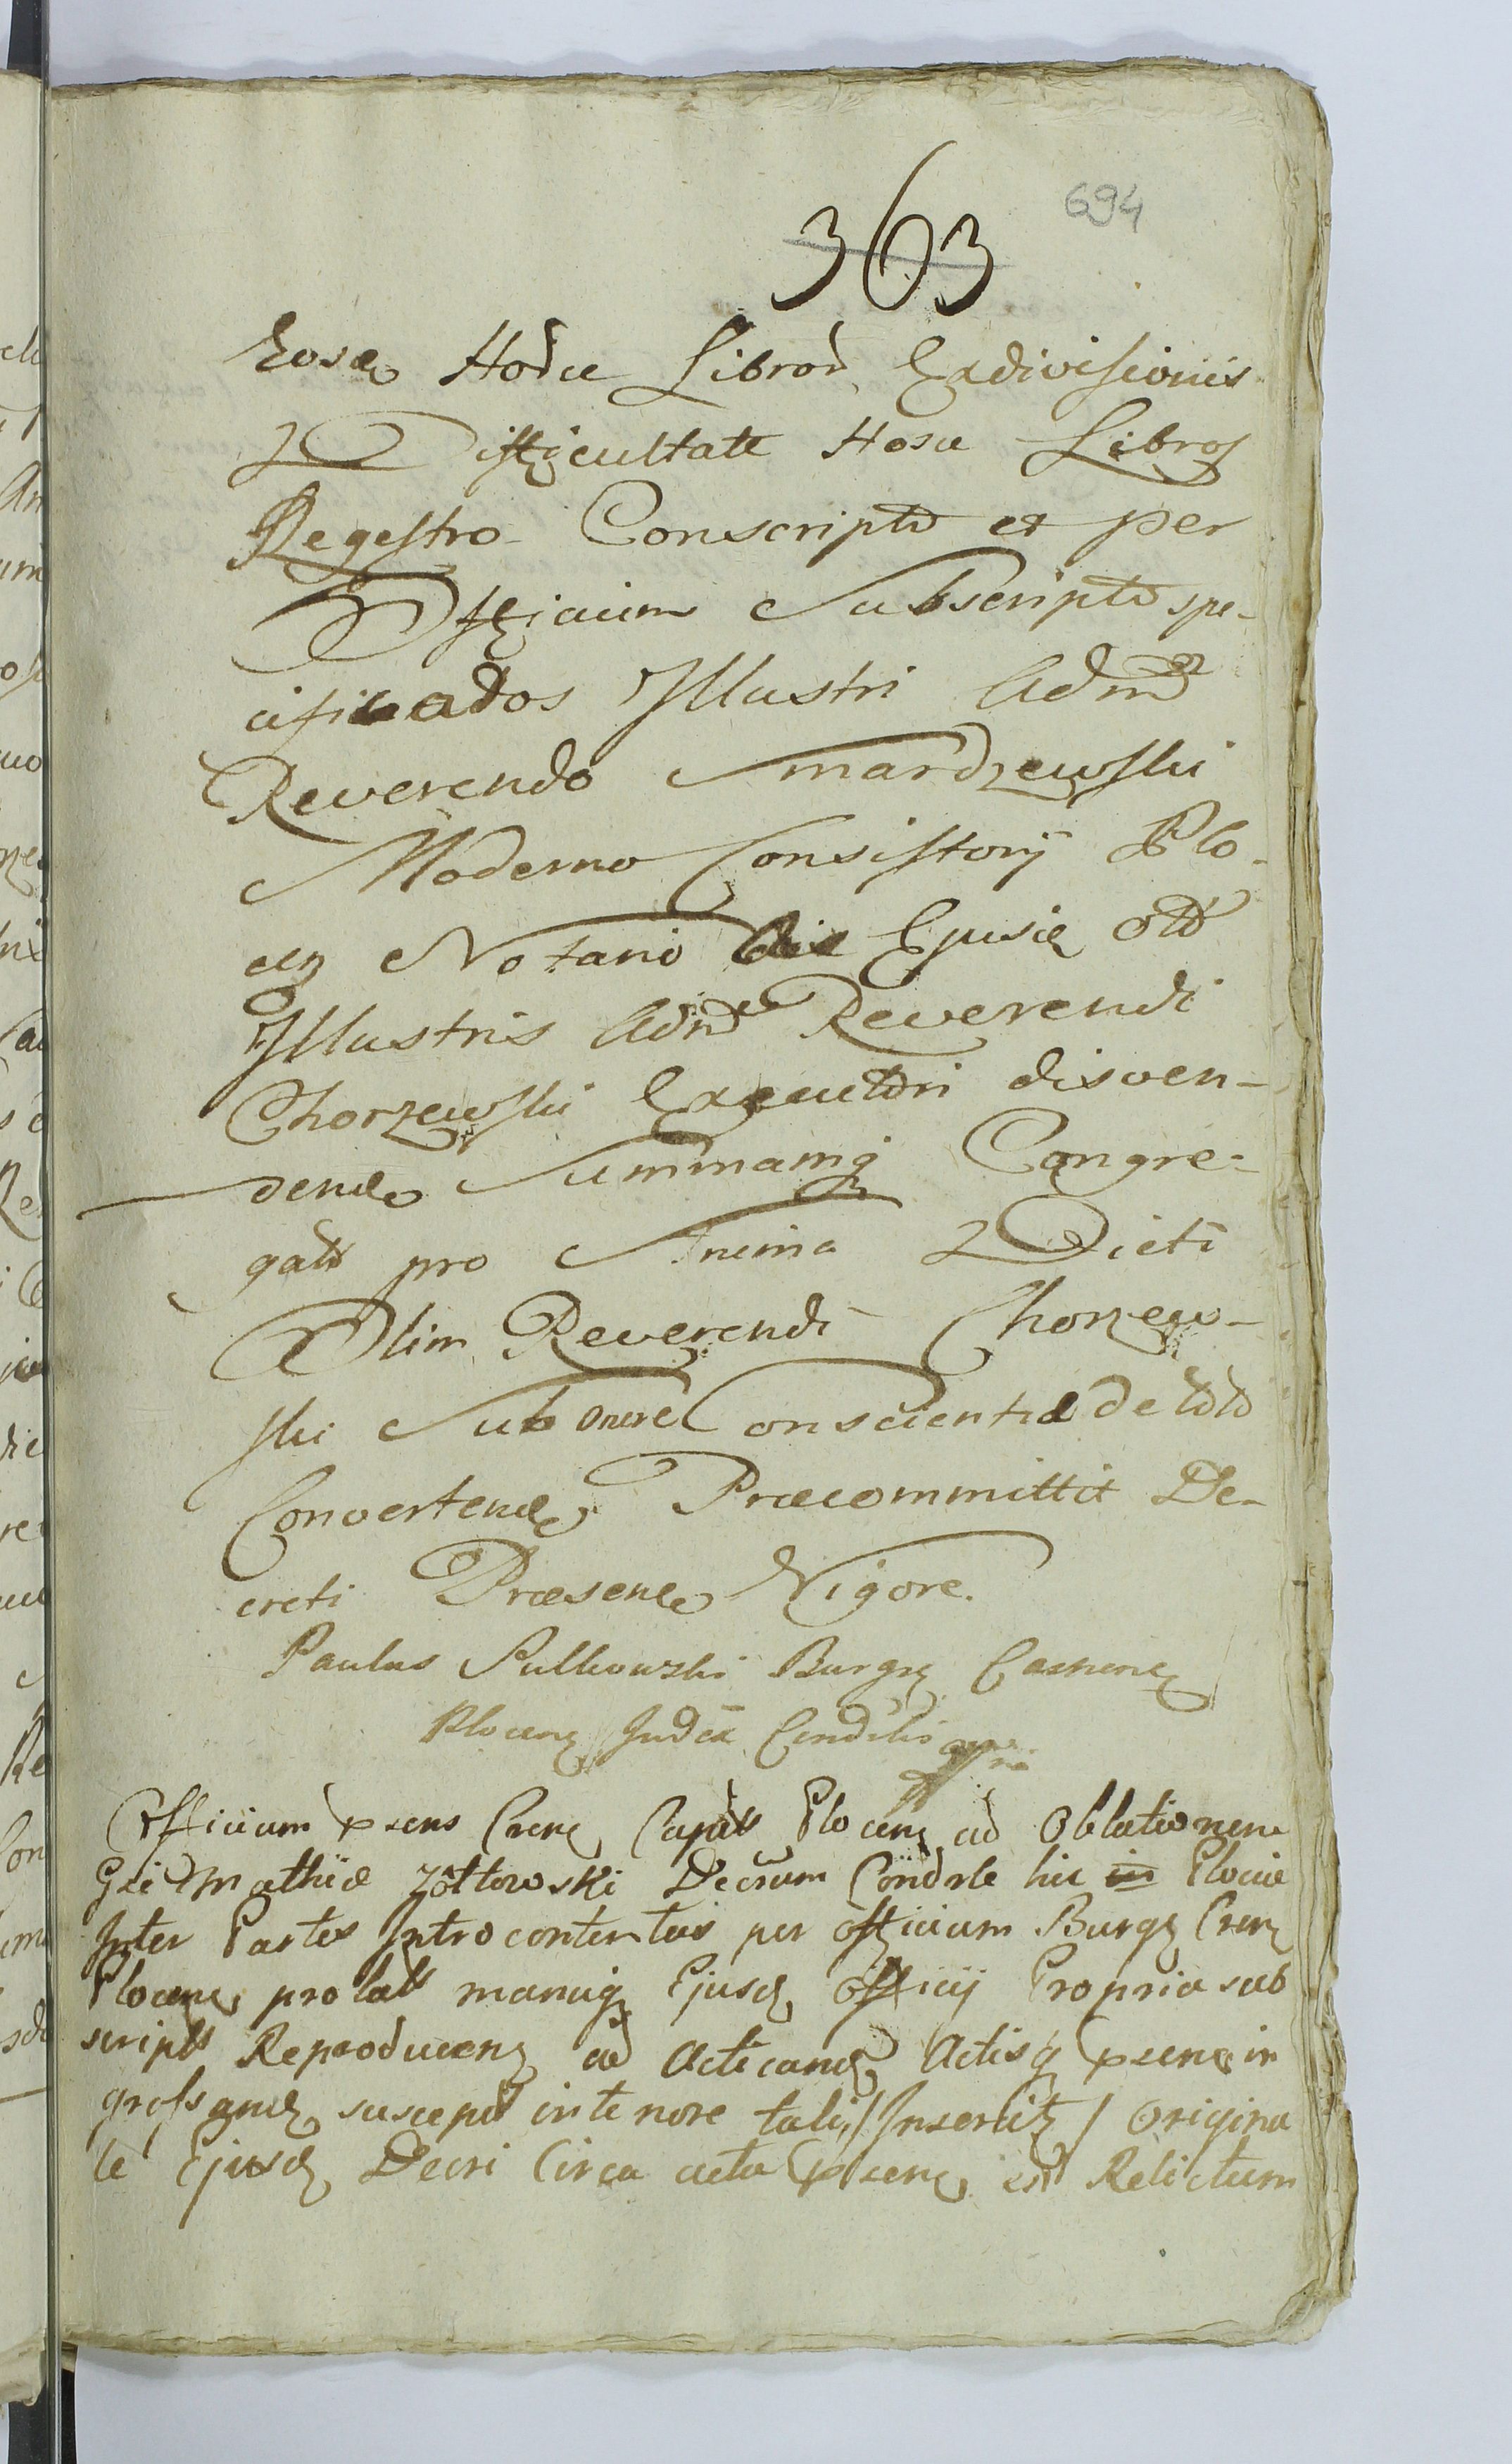 694
363
Eosq Hodie Libros Exdivisionis
Difficultate Hosce Libros
Regestro Conscripto et per
Officium Subscripto spe-
cificados Illustri Admd
Reverendo Smardzewski
Moderno Consistorij Plo-
cen Notario Ejusq
Illustris Admd Reverendi
Chorzewski Exequtori disven-
dend Summamq Congre-
gatt pro Anima Dicti
Olim Reverendi Chorzew-
ski Sub onere Conscientiæ de toto
Convertend Præcommittit De-
creti Præsene Vigore.
Paulus Sulkowski Burg Castren
Plocen Judex Condlis
Officium psens Crene Capit Plocen ad Oblationem
Gsi Mathiæ Zołtowski Decrum Condrle hic in Plocie
Inter Partes Introcontentas per officium Burg Cren
Plocen prolatt manuq Ejusd officij Propria sub
script Reproducen ad Acticand Actisq psene in
grossand suscepit in tenore tali /Inseritz/ Origina
le Ejusd Decri Circa acta psene est Relictum